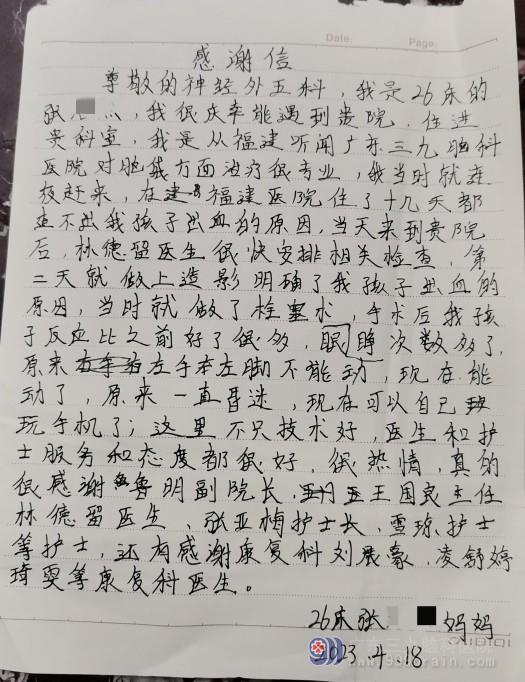 Date:
Page:
感谢信
尊敬的神经外五科，我是26床的
张，我很庆幸能遇到贵院，住进
贵科室，我是从福建听闻广东三九脑科
医院对脑线方面治疗很专业，我当时就连
夜赶来，在建福建医院住了十几天都
查不出我孩子出血的原因，当天来到贵院
后，林德留医生很快安排相关检查，第
二天就做上造影明确了我孩子出血的
原因，当时就做了栓塞术，手术后我孩
子反应比之前好了很多，眼睁次数多了，
原来左手右左脚不能动，现在能
动了，原来一直昏迷，现在可以自己
玩手机了；这里不只技术好，医生和护
士服务和态度都很好，很热情，真的
很感谢鲁明副院长，王国良主任
林德留医生，张亚梅护士长，雪琼护士
等护士，还有感谢康复科刘展豪，凌舒婷
琦雯等康复科医生。
26床张 妈妈
2023.4.18